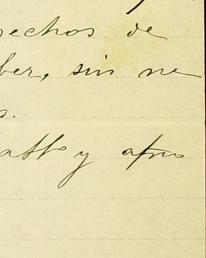 pechos de
ber, sin ne
s.
atto y afmo